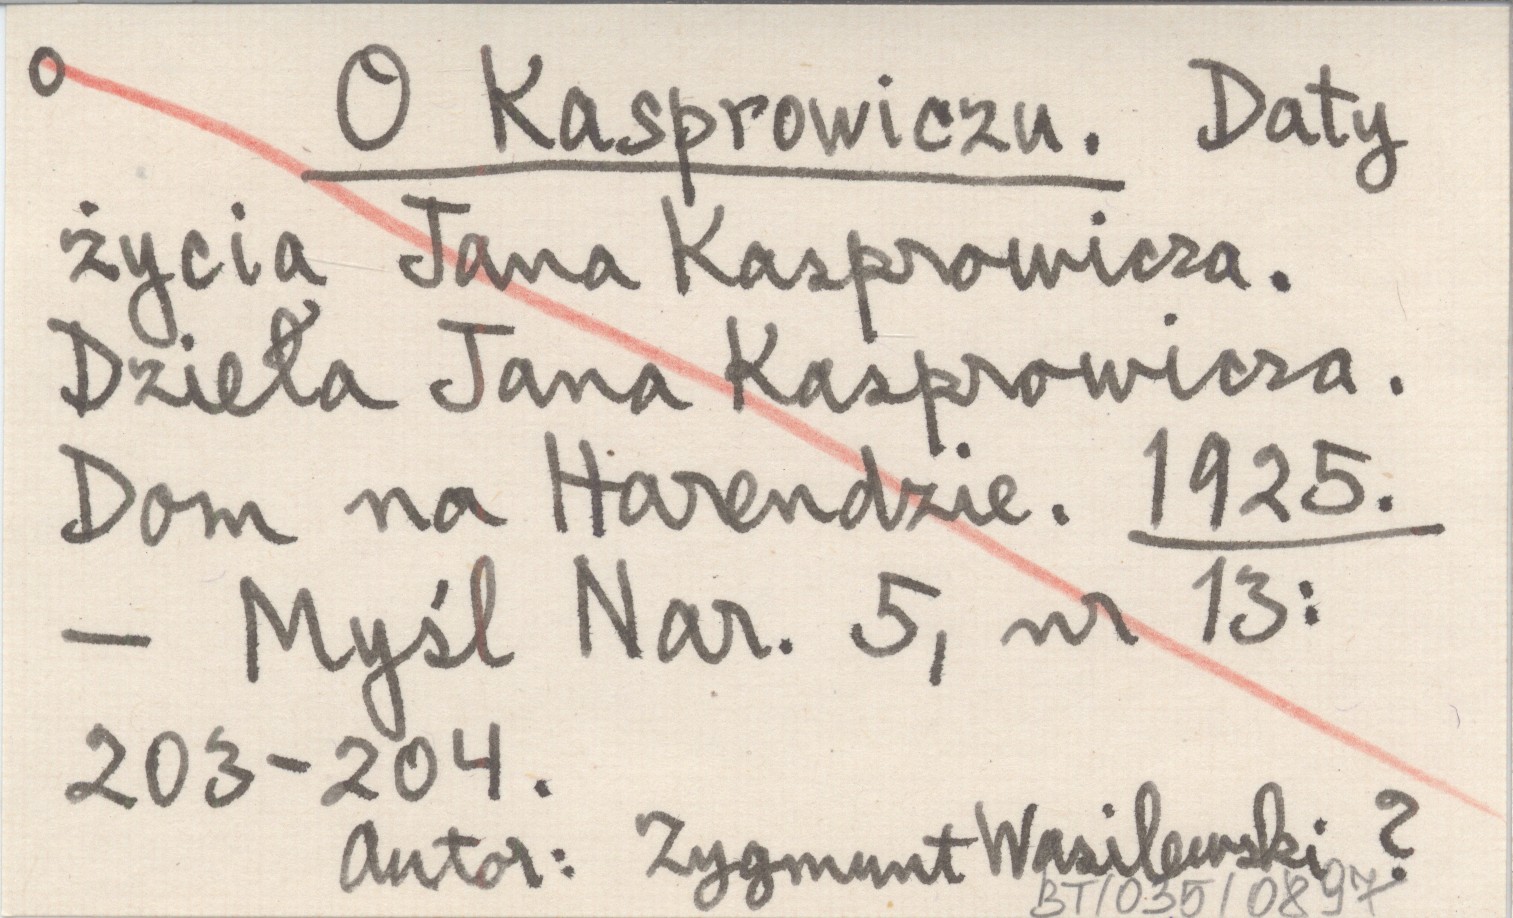 O Kasprowiczu. Daty
życia Jana Kasprowicza.
Dzieła Jana Kasprowicza.
Dom na Harendzie. 1925.
— Myśl Nar. 5, nr 13:
203-204.
Autor: Zygmunt Wasilewski?
BT/035/0897